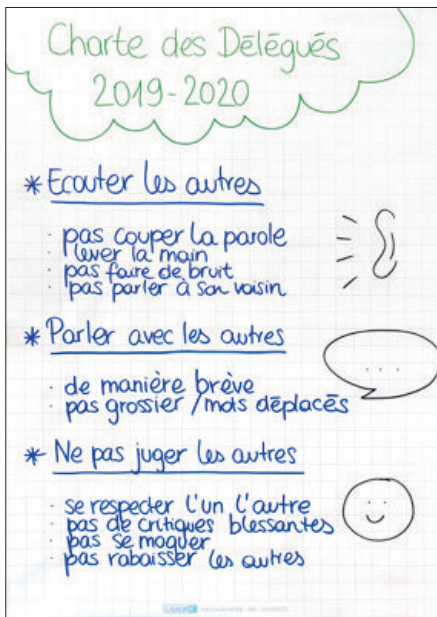 Charte des Délégués
2019-2020
* Ecouter les autres
· pas couper la parole
· lever la main
· pas faire de bruit
· pas parler à son voisin
* Parler avec les autres
...
· de manière brève
· pas grossier / mots déplacés
* Ne pas juger les autres
· se respecter l'un l'autre
· pas de critiques blessantes
· pas se moquer
· pas rabaisser les autres